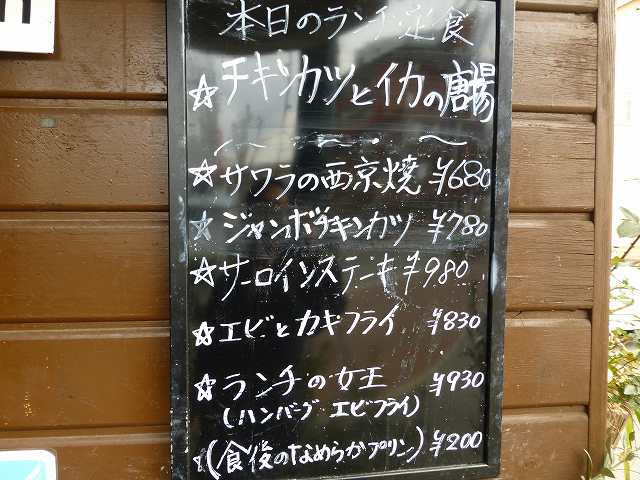 本日のランチ定食
☆チキンカツとイカの唐揚
☆サワラの西京焼 ¥680
☆ジャンボチキンカツ ¥780
☆サーロインステーキ ¥980
☆エビとカキフライ ¥830
☆ランチの女王 ¥930
(ハンバーグ エビフライ)
(食後のなめらかプリン) ¥200